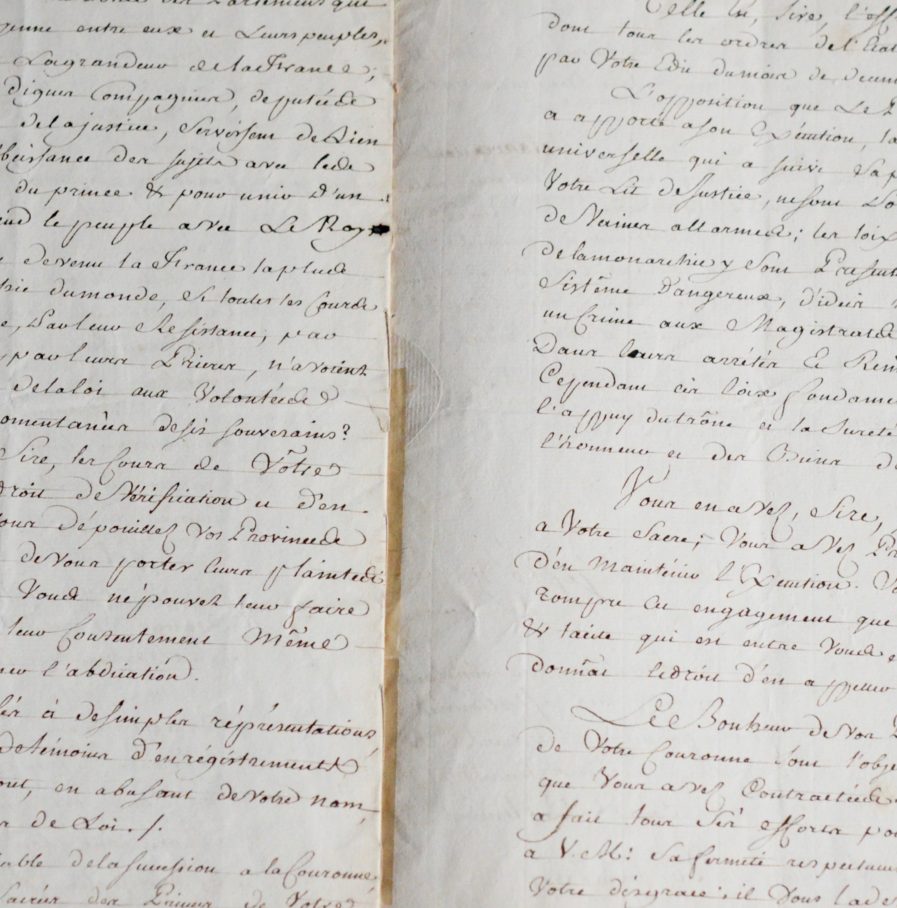 des Parlemens que
entre eux et Leurs peuples,
La grandeur de la France;
dignes Compagnies, deputée de
de la justice, Servissent de Lien
des sujets avec le de
du prince & pour unir d'un
le peuple avec Le Roy
devenu la France la plus de
du monde, Si toutes les Cours de
Par leur Résistance, par
par leurs Prieres, n'avoient
de la loi aux Volontés de
de ses souverains?
Sire, les Cours de Vôtre
droit de Vérification et d'en
dépouillez Vos Provinces de
de Vous porter leurs plaintes de
Vous ne pouvez leur faire
leur Consentement Même
l'abdication.
à de simples répréséntations
de témoins d'enrégistrements
en abusant de Votre nom,
de Loi./.
de la succession a la Couronne
des Princes de Votre
Telle Est, Sire,
dont tous les ordres de l'Etat
par Votre Edit du mois de
L'opposition que Le
a apporté a son Exécution, la
universelle qui a suivi Sa
Votre Lit de Justice, ne sont
de Vaines allarmes; les loix
de la monarchie y Sont
Sistême Dangereux,
un Crime aux Magistrats de
Dans leurs arrétés &
Cependant ces loix
l'appuy du trône et la Sureté
l'honneur et des Biens
Vous en avez, Sire,
a Votre Sacre; Vous avez
d'en Maintenir l'Exécution.
rompre cet engagement que
& tacite qui est entre Vous
donnât le droit d'en appeller
Le Bonheur de Vos
de Votre Couronne sont
que Vous avez Contracté de
a fait tous Ses efforts
a V. M: Sa fermeté
Votre disgrace; il